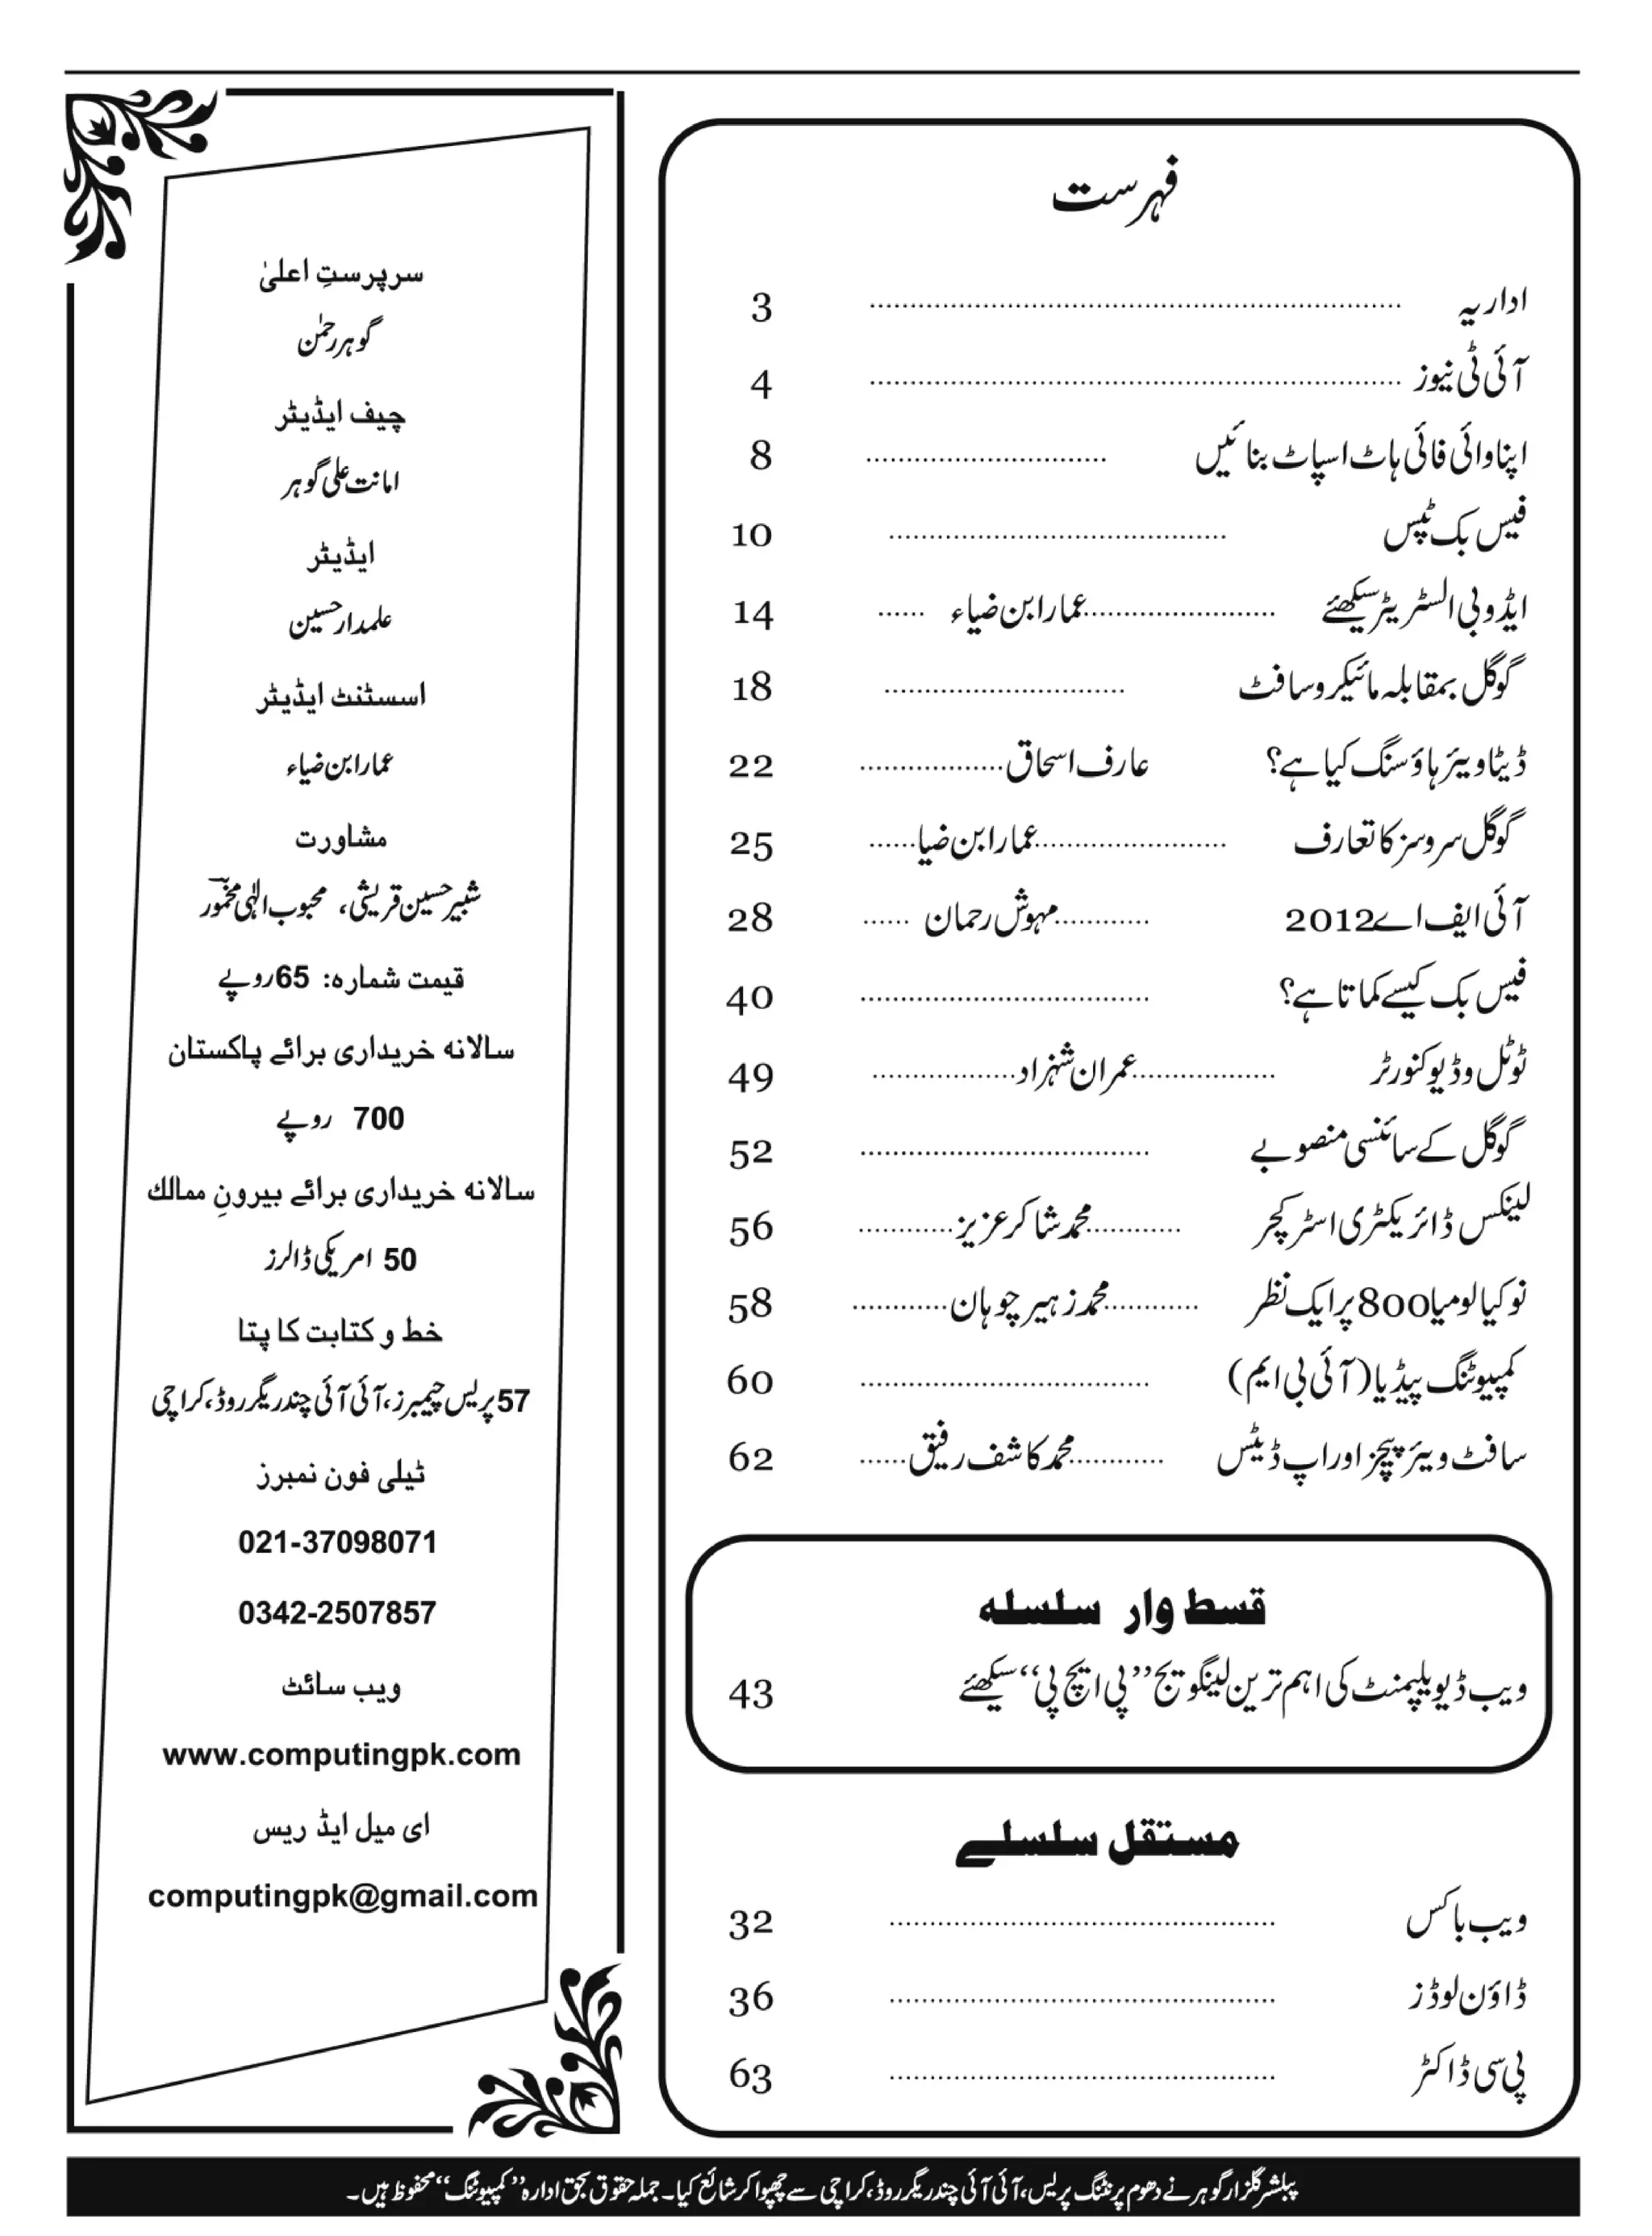 فہرست
اداریہ ........ 3
آئی ٹی نیوز ........ 4
اپنا وائی فائی ہاٹ اسپاٹ بنائیں ........ 8
فیس بک ٹپس ........ 10
ایڈوبی السٹریٹر سیکھئے ........ عمار ابن ضیاء ...... 14
گوگل بمقابلہ مائیکروسافٹ ........ 18
ڈیٹا ویئر ہاؤسنگ کیا ہے؟ عارف اسحاق ........ 22
گوگل سروسز کا تعارف ........ عمار ابن ضیا ...... 25
آئی ایف اے 2012 ........ مہوش رحمان ...... 28
فیس بک کیسے کماتا ہے؟ ........ 40
ٹوٹل وڈیو کنورٹر ........ عمران شہزاد ........ 49
گوگل کے سائنسی منصوبے ........ 52
لینکس ڈائریکٹری اسٹرکچر ........ محمد شاکر عزیز ........ 56
نوکیا لومیا 800 پر ایک نظر ........ محمد زہیر چوہان ........ 58
کمپیوٹنگ پیڈیا (آئی بی ایم) ........ 60
سافٹ ویئر پیچز اور اپ ڈیٹس ........ محمد کاشف رفیق ...... 62
قسط وار سلسلہ
ویب ڈیویلپمنٹ کی اہم ترین لینگویج ’’پی ایچ پی‘‘ سیکھئے 43
مستقل سلسلے
ویب باکس ........ 32
ڈاؤن لوڈز ........ 36
پی سی ڈاکٹر ........ 63
سرپرستِ اعلیٰ
گوہر رحمٰن
چیف ایڈیٹر
امانت علی گوہر
ایڈیٹر
علمدار حسین
اسسٹنٹ ایڈیٹر
عمار ابن ضیاء
مشاورت
شبیر حسین قریشی، محبوب الٰہی مخمورؔ
قیمت شمارہ: 65 روپے
سالانہ خریداری برائے پاکستان
700 روپے
سالانہ خریداری برائے بیرونِ ممالک
50 امریکی ڈالرز
خط و کتابت کا پتا
57 پریس چیمبرز، آئی آئی چندریگر روڈ، کراچی
ٹیلی فون نمبرز
021-37098071
0342-2507857
ویب سائٹ
www.computingpk.com
ای میل ایڈریس
computingpk@gmail.com
پبلشر گلزار گوہر نے دھوم پرنٹنگ پریس، آئی آئی چندریگر روڈ، کراچی سے چھپوا کر شائع کیا۔ جملہ حقوق بحق ادارہ ’’کمپیوٹنگ‘‘ محفوظ ہیں۔